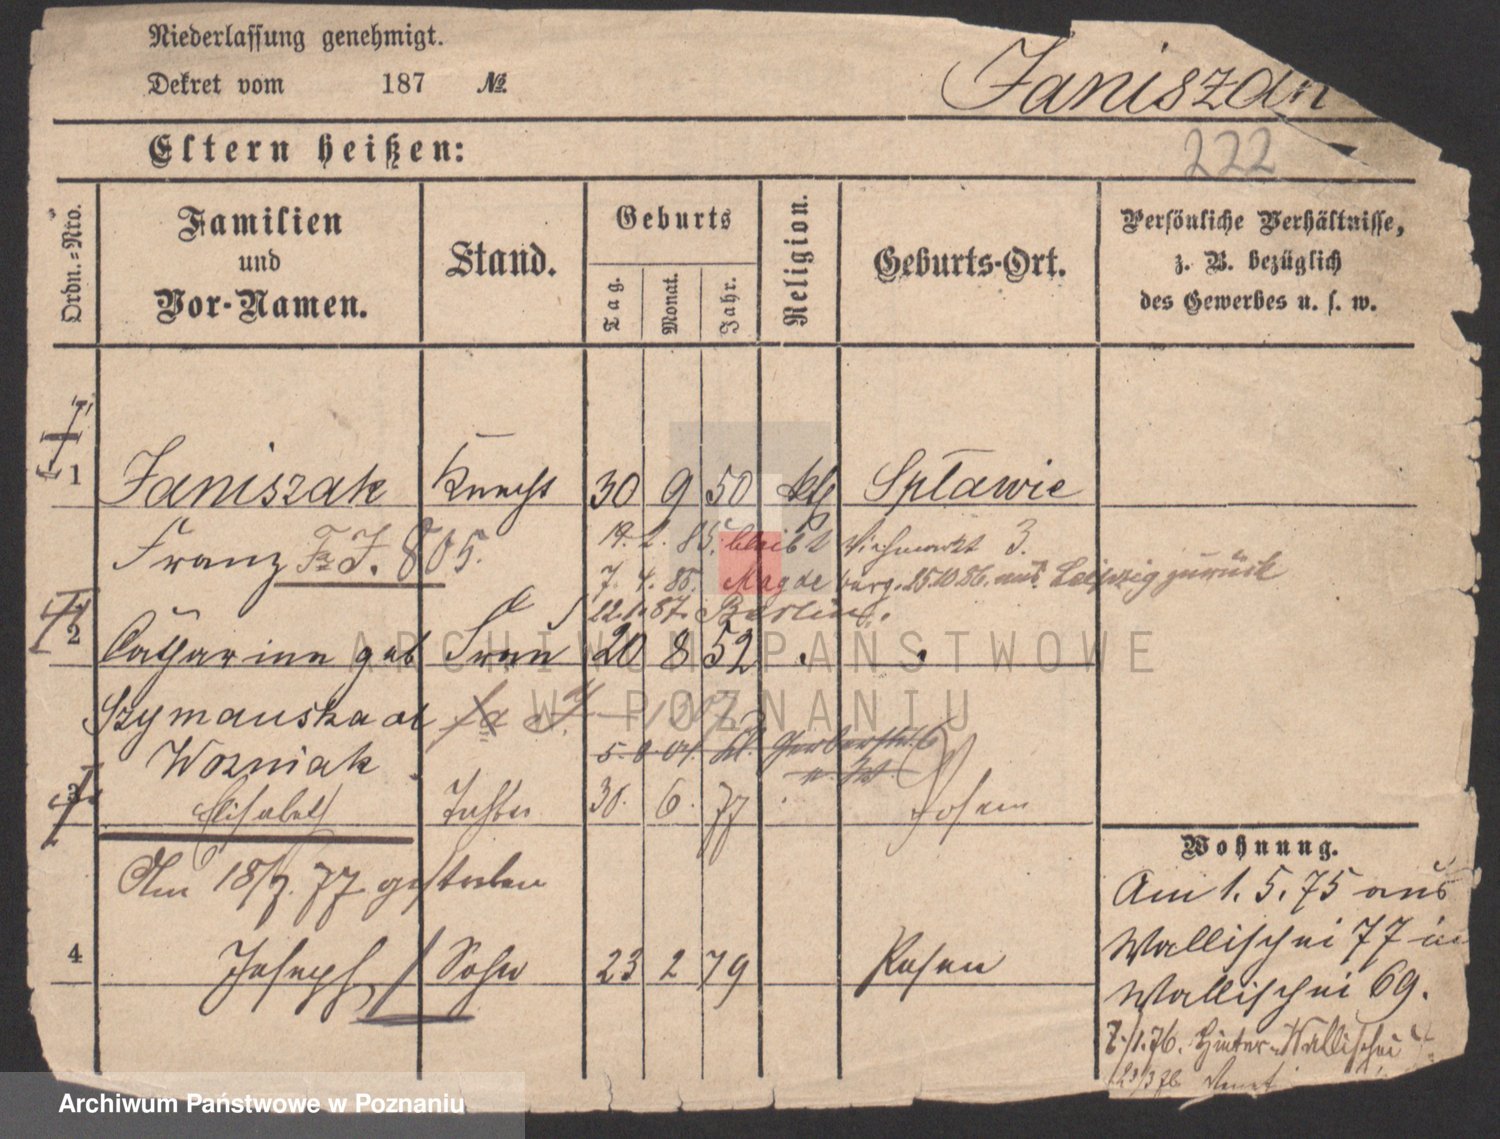 Niederlassung genehmigt.
Dekret vom 187 №
Janiszak
222
Eltern heißen:
Ordn.-Nro.
Familien
und
Vor-Namen.
Stand.
Geburts
Tag.
Monat.
Jahr.
Religion.
Geburts-Ort.
Persönliche Verhältnisse,
z. B. bezüglich
des Gewerbes u. s. w.
1 Janiszak Knecht 30 9 50 kth Spławie
Franz F. J. 805.
19. 2. 85. bleibt Viehmarkt 3.
7. 4. 85. Magdeburg. 25.10.86. aus Leipzig zurück
22.1.87. Berlin.
2 Catharine geb Frau 20 8 52
Szymanska al
Wozniak
3 Elisabeth Tochter 30. 6. 77 Posen
Am 18/7. 77 gestorben
4 Joseph Sohn 23 2 79 Posen
Wohnung.
Am 1. 5. 75 aus
Wallischei 77 in
Wallischei 69.
7./1.76. Hinter-Wallischei
ARCHIWUM PAŃSTWOWE
W POZNANIU
Archiwum Państwowe w Poznaniu